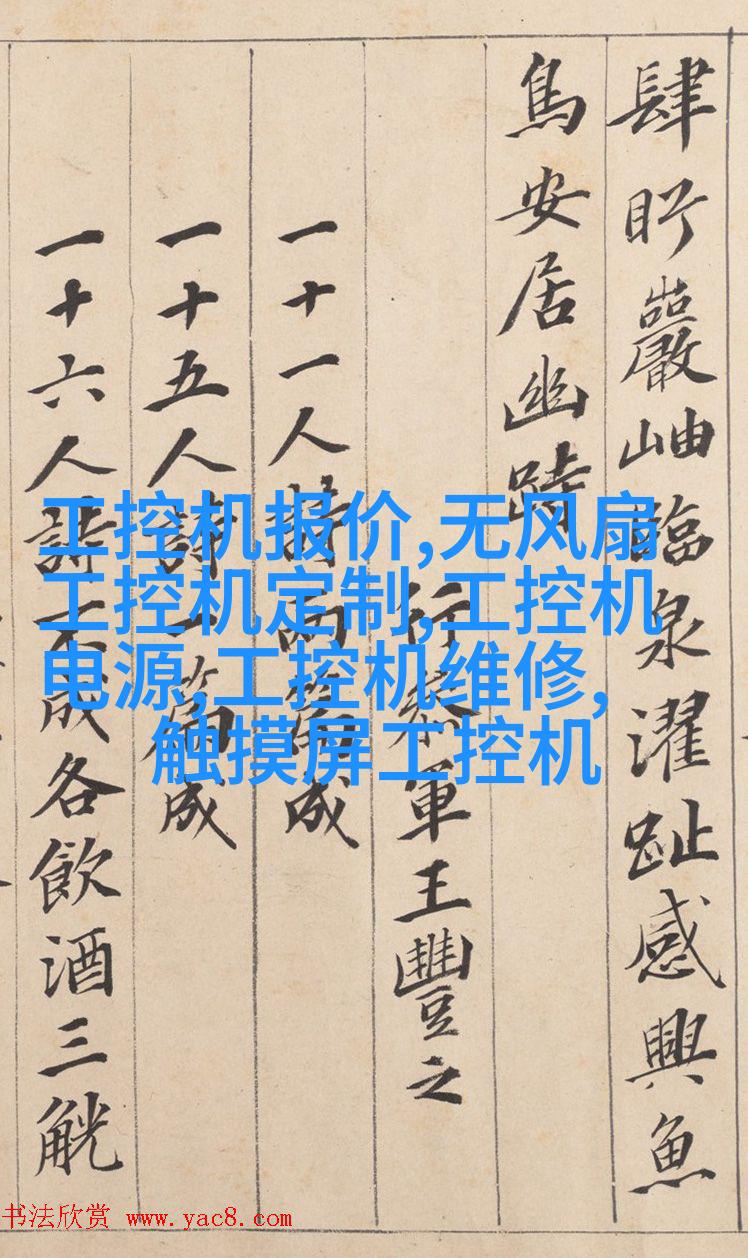 肆眄巖岫臨泉濯趾感興魚
鳥安居幽跱
行叅軍王豐之
一十一人詩兩篇成
一十五人詩一篇成
一十六人詩不成各飲酒三觥
工控机报价,无风扇
工控机定制,工控机
电源,工控机维修,
触摸屏工控机
书法欣赏 www.yac8.com